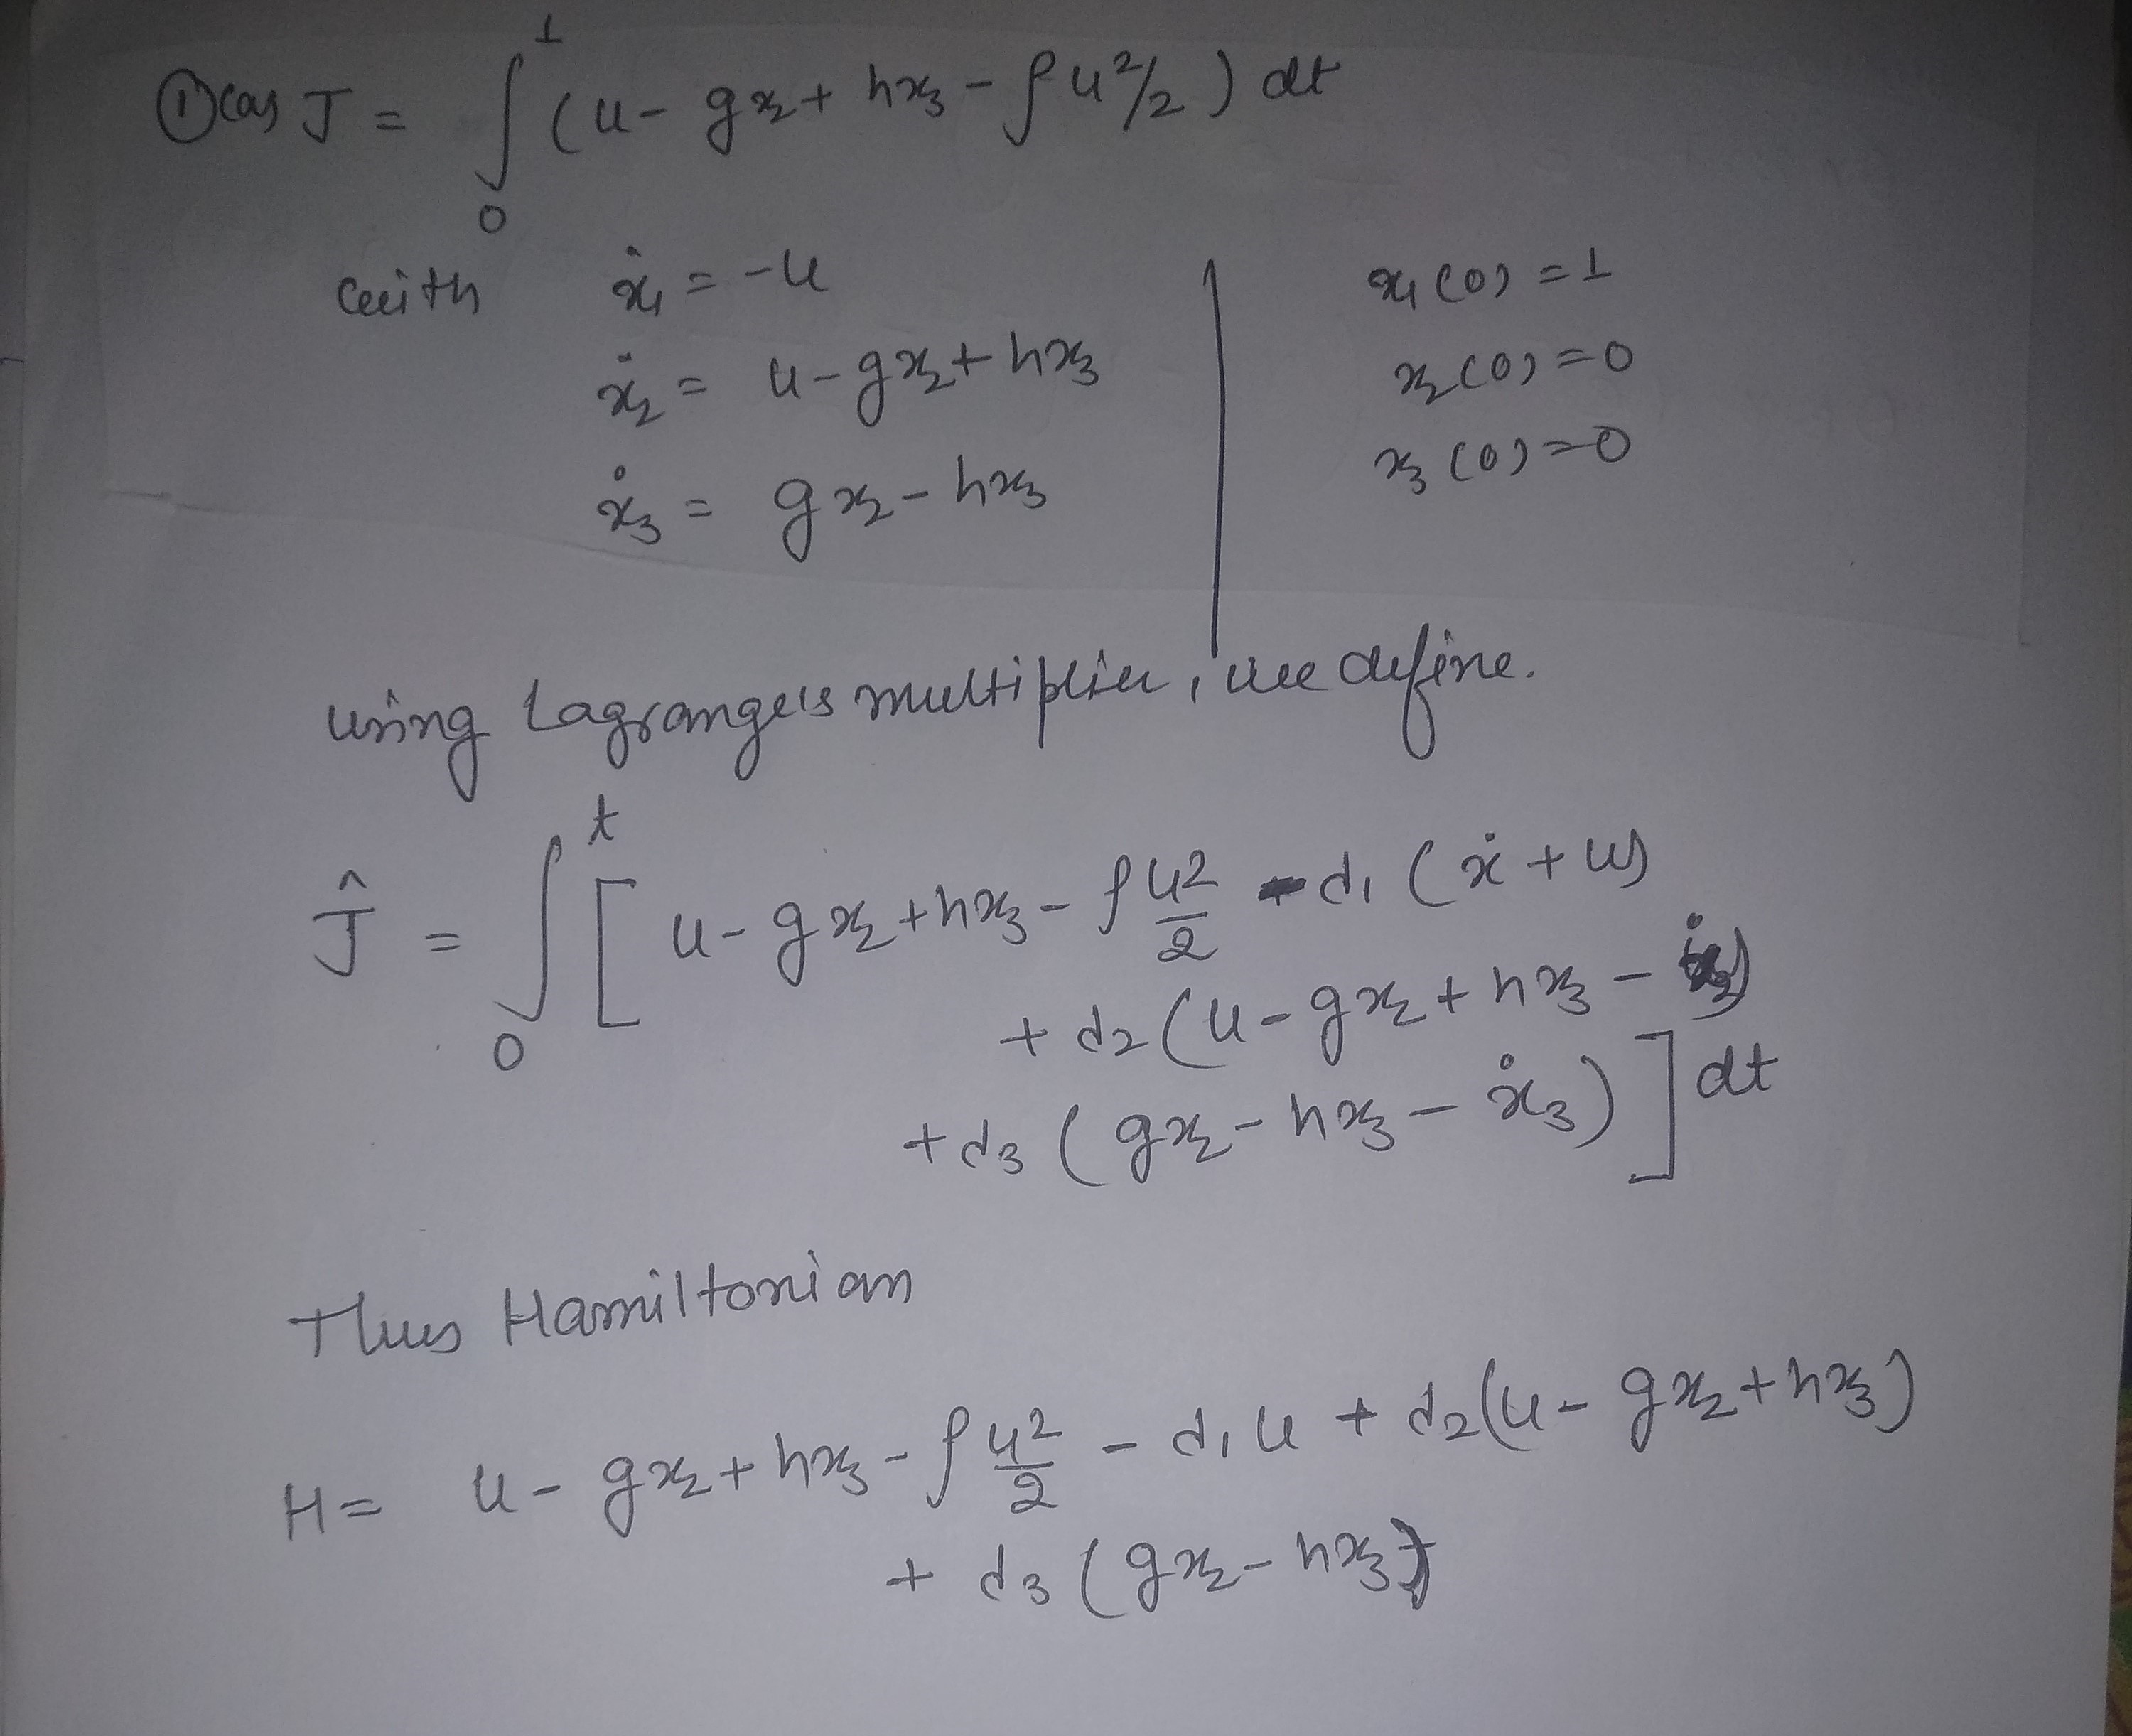 ① (a) J = ∫₀¹ (u - gx₂ + hx₃ - ρu²/2) dt
with ẋ₁ = -u | x₁(0) = 1
ẋ₂ = u - gx₂ + hx₃ | x₂(0) = 0
ẋ₃ = gx₂ - hx₃ | x₃(0) = 0
using Lagrange's multiplier, we define.
Ĵ = ∫₀ᵗ [ u - gx₂ + hx₃ - ρu²/2 - d₁(ẋ + u)
+ d₂(u - gx₂ + hx₃ - ẋ₂)
+ d₃(gx₂ - hx₃ - ẋ₃) ] dt
Thus Hamiltonian
H = u - gx₂ + hx₃ - ρu²/2 - d₁u + d₂(u - gx₂ + hx₃)
+ d₃(gx₂ - hx₃)